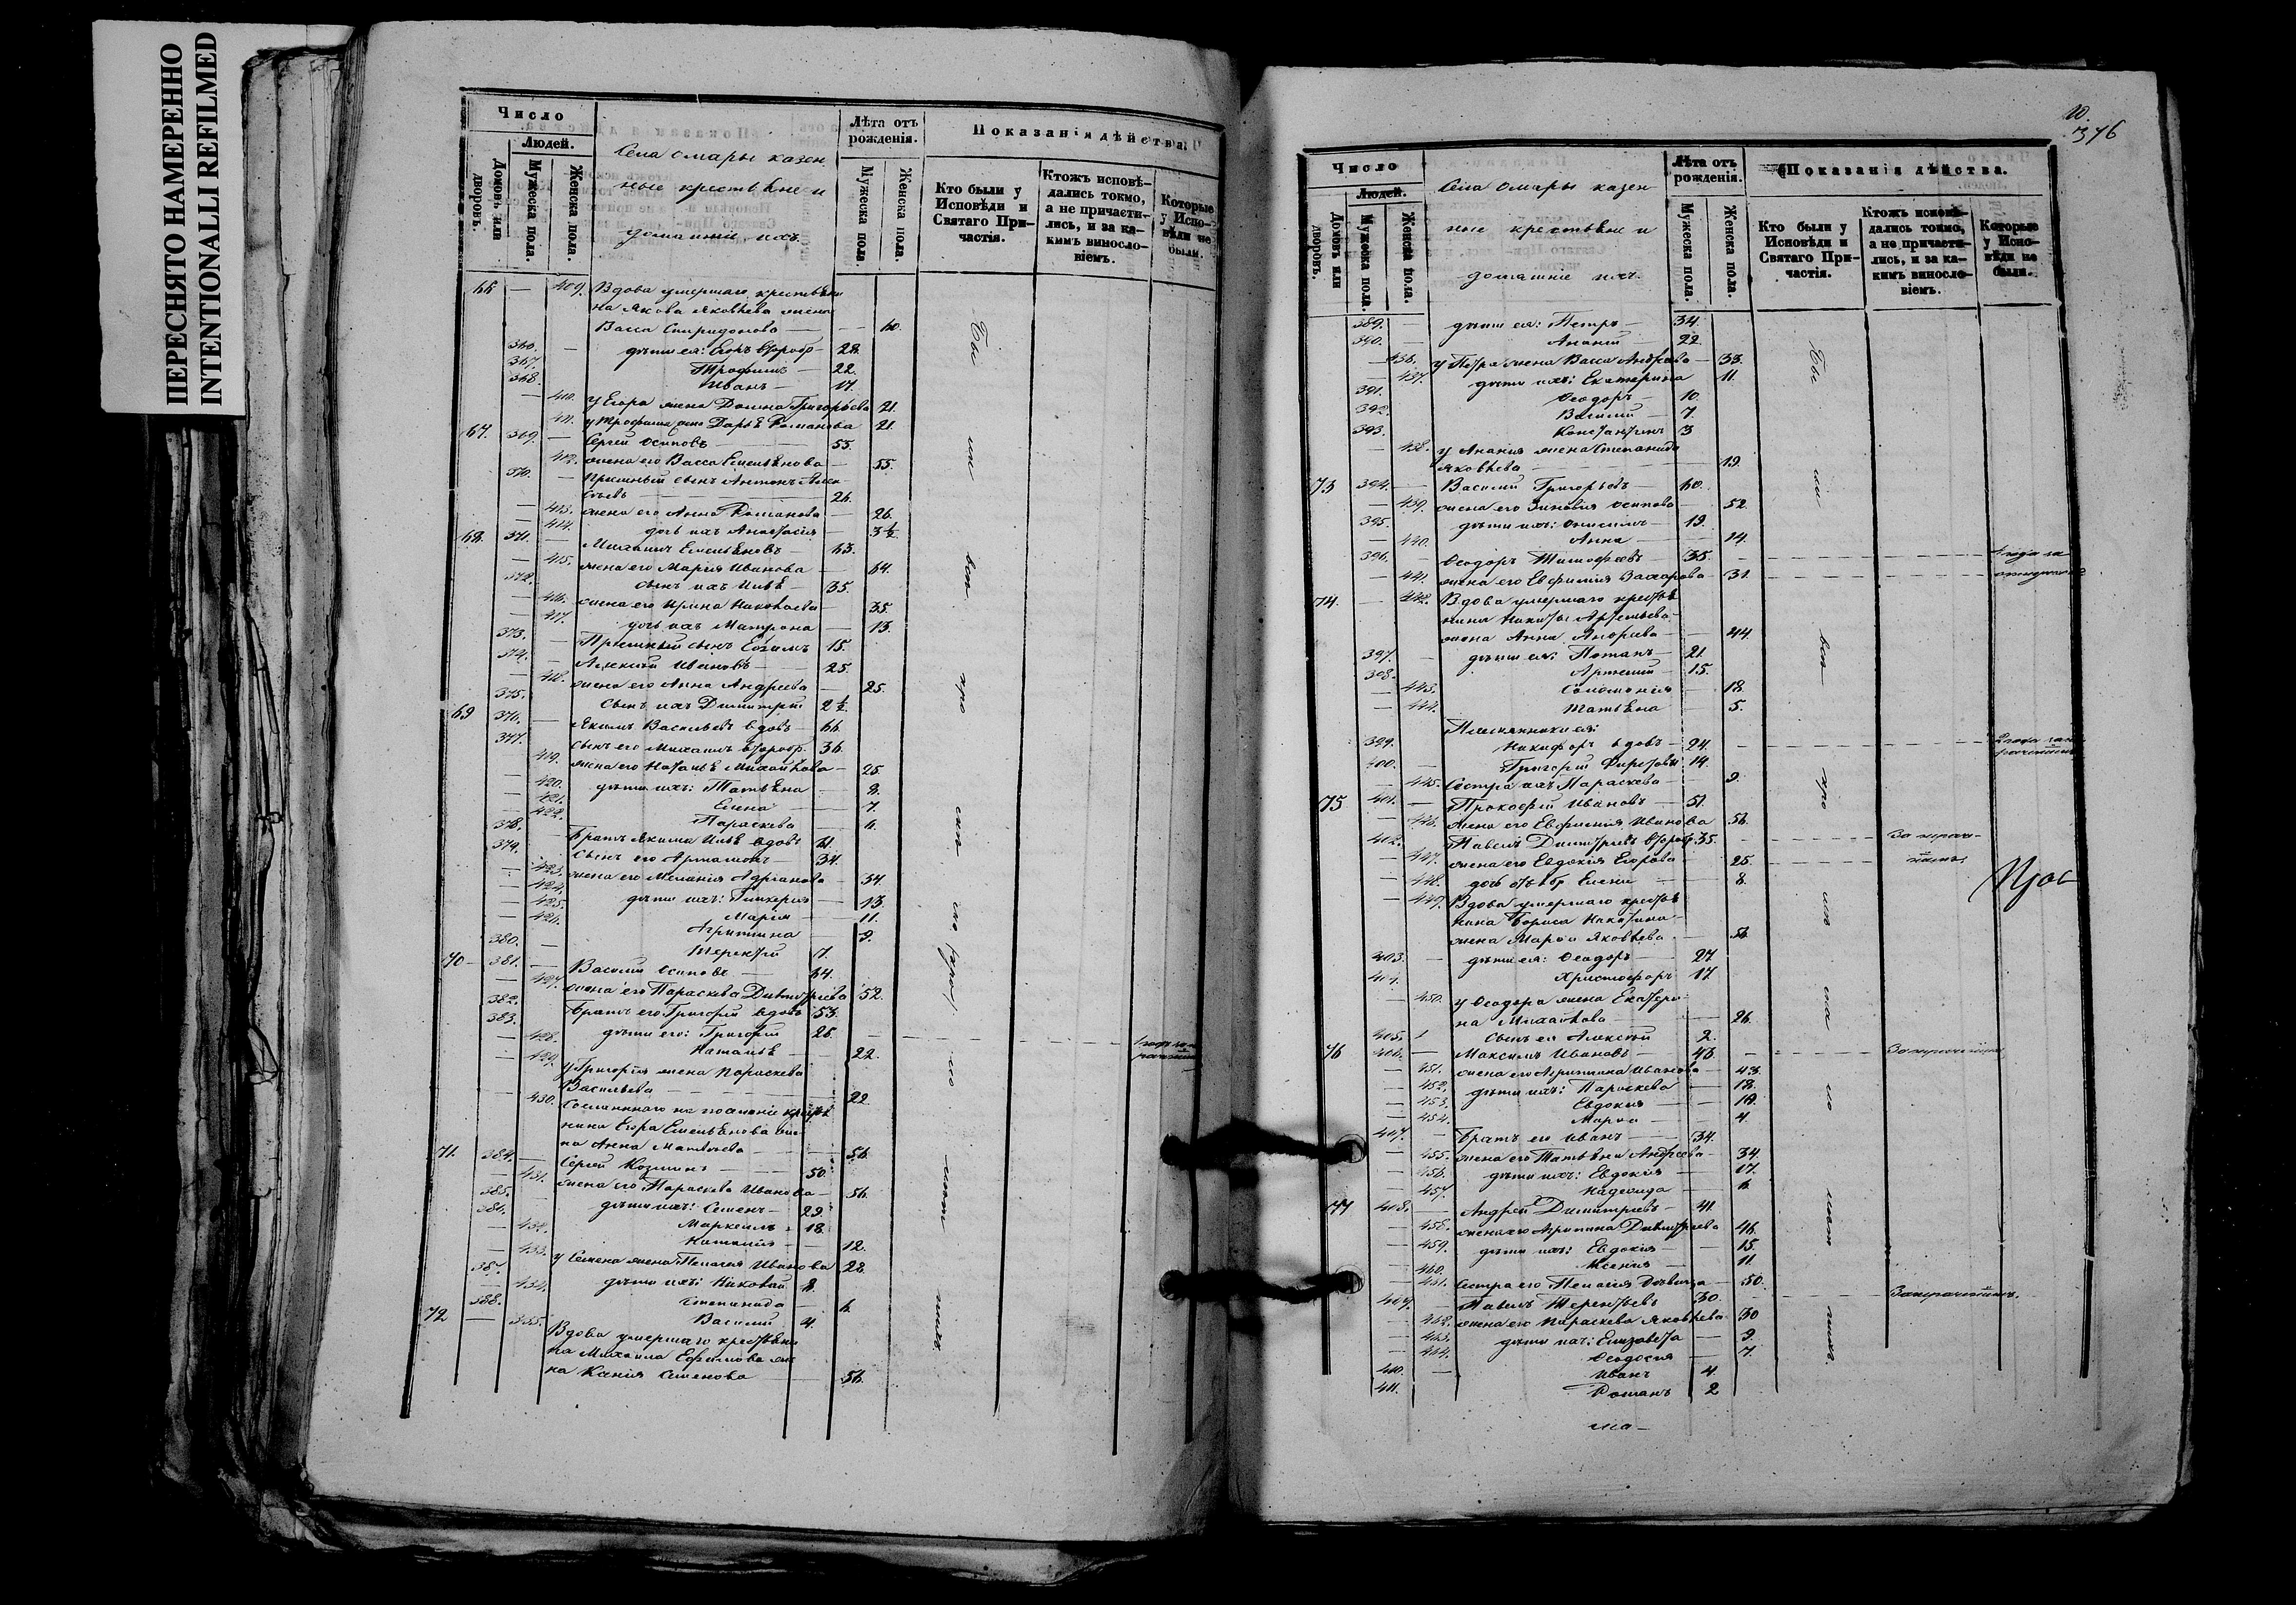 ПЕРЕСНЯТО НАМЕРЕННО
INTENTIONALLI REFILMED
Число
Людей.
Домовъ или дворовъ.
Мужеска пола.
Женска пола.
Села Омары казен
ные крестьяне и
домашніе ихъ.
Лѣта отъ рожденія.
Мужеска пола.
Женска пола.
Показанія дѣйства.
Кто были у Исповѣди и Святаго Причастія.
Ктожъ исповѣдались токмо, а не причастились, и за какимъ винословіемъ.
Которые у Исповѣди не были.
66 — 409. Вдова умершаго крестьяни
на Якова Яковлева жена
Васса Спиридонова — 60.
366. — дѣти ея: Егоръ — 28.
367. Трофимъ — 22.
368. Иванъ — 17.
— 410. у Егора жена Домна Григорьева 21.
— 411. у Трофима жена Дарья Романова 21.
67. 369. — Сергей Осиповъ — 55.
412. жена его Васса Емельянова — 55.
370. — Пріемный сынъ Антонъ
26.
— 413. жена его Анна Романова — 26.
— 414. дочь ихъ Анастасія — 3½
68. 371. — Михаилъ Емельяновъ — 63.
— 415. жена его Марія Иванова — 64.
372. — сынъ ихъ Илья 35.
— 416. жена его Ирина Николаева — 35
— 417. дочь ихъ Матрона — 13.
373. — Пріемный сынъ 15.
374. — Алексей Ивановъ — 25.
— 418. жена его Анна Андреева — 25.
375. — сынъ ихъ Димитрій 2½.
69 376. — Якимъ Васильевъ вдовъ — 66.
377. сынъ его Михаилъ 36.
— 419. жена его Наталья Михайлова — 25.
— 420. дѣти ихъ: Татьяна — 8.
— 421. Елена — 7.
— 422. Параскева — 6.
378. — Братъ Якима Илья вдовъ 61.
379. Сынъ его Артамонъ — 34.
— 423. жена его Меланія Адріанова — 34.
— 424. дѣти ихъ: Гликерія — 13.
— 425. Марія — 11.
— 426. Агрипина — 9.
380. — Терентій 7.
70 — 381. — Василій Осиповъ — 64.
— 427. жена его Параскева Димитріева 52.
382. Братъ его Григорій вдовъ 53.
383. дѣти его: Григорій 25.
— 428. Наталья — 22.
— 429. у Григорія жена Параскева
Васильева — 22
— 430. Сосланнаго на поселеніе кресть
нина Егора Емельянова же
на Анна Матвѣева — 56.
71. 384. — Сергей Козминъ — 50.
— 431. жена его Параскева Иванова — 56.
385. — дѣти ихъ: Семенъ — 29.
386. Маркелъ 18.
— 432. Наталія — 12.
— 433. у Семена жена Пелагея Иванова 28.
387. — дѣти ихъ: Николай 8.
— 434. Степанида — 6.
388. Василій 4.
72 — 435. Вдова умершаго крестьяни
на Михаила Ефимова же
на Ксенія Семенова — 56.
Бы
ли
вси
при
сем
но
10.
376
Число
Людей.
Домовъ или дворовъ.
Мужеска пола.
Женска пола.
Села Омары казен
ные крестьяне и
домашніе ихъ.
Лѣта отъ рожденія.
Мужеска пола.
Женска пола.
Показанія дѣйства.
Кто были у Исповѣди и Святаго Причастія.
Ктожъ исповѣдались токмо, а не причастились, и за какимъ винословіемъ.
Которые у Исповѣди не были.
389. — дѣти ея: Петръ — 34.
390. — Ананій — 22.
— 436. у Петра жена Васса Андреева — 33.
— 437. дѣти ихъ: Екатерина 11.
391. Ѳеодоръ — 10.
392. Василій — 7.
393. Константинъ 3
— 438. у Ананія жена Степанида
Яковлева — 19.
73 394. — Василій Григорьевъ — 60.
— 439. жена его Зиновія Осипова — 52.
395. дѣти ихъ: Онисимъ — 19.
— 440. Анна — 14.
396. Ѳеодоръ Тимофеевъ — 35.
— 441. жена его Евфимія Захарова — 31.
74. — 442. Вдова умершаго кресть
нина Никиты Артемьева
жена Анна Андреева — 44.
397. — дѣти ея: Потапъ — 21.
398. Артемій — 15.
— 443. Соломонія — 18.
— 444. Татьяна — 5.
Племянники ея:
399. Никифоръ вдовъ — 24.
400. — Григорій 14.
— 445. Сестра ихъ Параскева — 9.
75 401. — Прокофій Ивановъ — 51.
— 446. жена его Евфимія Иванова 56.
402. Павелъ Димитріевъ 35.
— 447. жена его Евдокія Егорова — 25.
— 448. дочь Елена — 8.
— 449. Вдова умершаго кресть
нина Бориса Никитина
жена Марѳа Яковлева — 54.
403. — дѣти ея: Ѳеодоръ — 27.
404. Христофоръ 17.
— 450. у Ѳеодора жена Екатери
на Михайлова — 26.
405. Сынъ ея Алексѣй 2.
76 406. — Максимъ Ивановъ — 43.
— 451. жена его Агрипина Иванова — 43.
— 452. дѣти ихъ: Параскева — 18.
— 453. Евдокія — 10.
— 454. Марѳа — 4.
407. — Братъ его Иванъ — 34.
— 455. жена его Татьяна Андреева — 34.
— 456. дѣти ихъ: Евдокія — 17.
— 457. Надежда — 6.
77 408. — Андрей Димитріевъ — 41.
— 458. жена его Агрипина Димитріева 46.
— 459. дѣти ихъ: Евдокія — 15.
— 460. Ксенія — 11.
— 461. Сестра его Пелагія Дѣвица — 50.
409. — Павелъ Терентьевъ 30.
— 462. жена его Параскева Яковлева 30
— 463. дѣти ихъ: Елизавета — 9.
— 464. Ѳеодосія — 7.
410. — Иванъ 4.
411. Романъ 2
Бы
ли
вси
при